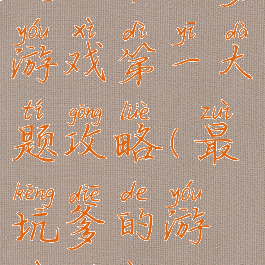 yóu xì dì yī dà
游戏第一大
tí gōng lüè zuì
题攻略(最
kēng diē de yóu
坑爹的游